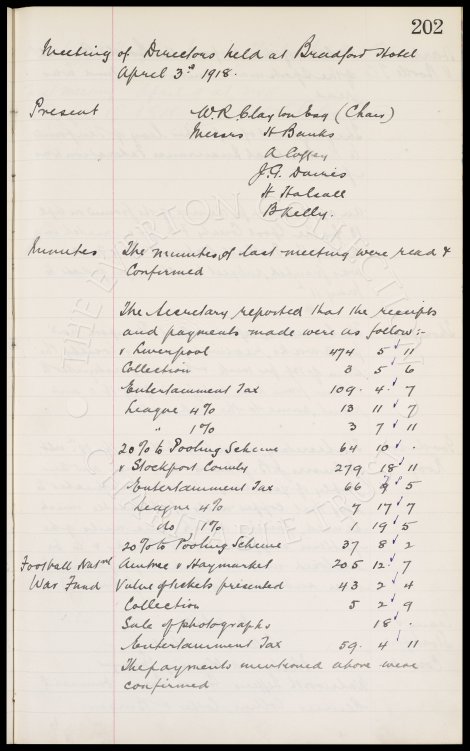 202
Meeting of Directors held at Bradford Hotel
April 3rd 1918.
Present W.R. Clayton Esq (Chair)
Messrs H Banks
A Coffey
J.G. Davies
H Halsall
B Kelly.
Minutes The minutes of last meeting were read &
Confirmed
The Secretary reported that the receipts
and payments made were as follow:-
v Liverpool 474 5 11
Collection 3 5 6
Entertainment Tax 109. 4. 7
League 4% 13 11 7
" 1% 3 7 11
20% to Pooling Scheme 64 10 .
v Stockport County 279 18 11
Entertainment Tax 66 9 5
League 4% 7 17 7
do 1% 1 19 5
20% to Pooling Scheme 37 8 2
Football Natnl Aintree v Haymarket 205 12 7
War Fund Value of tickets presented 43 2 4
Collection 5 2 9
Sale of photographs 18 .
Entertainment Tax 59. 4 11
The payments mentioned above were
confirmed
THE EVERTON COLLECTION
CHARITABLE TRUST